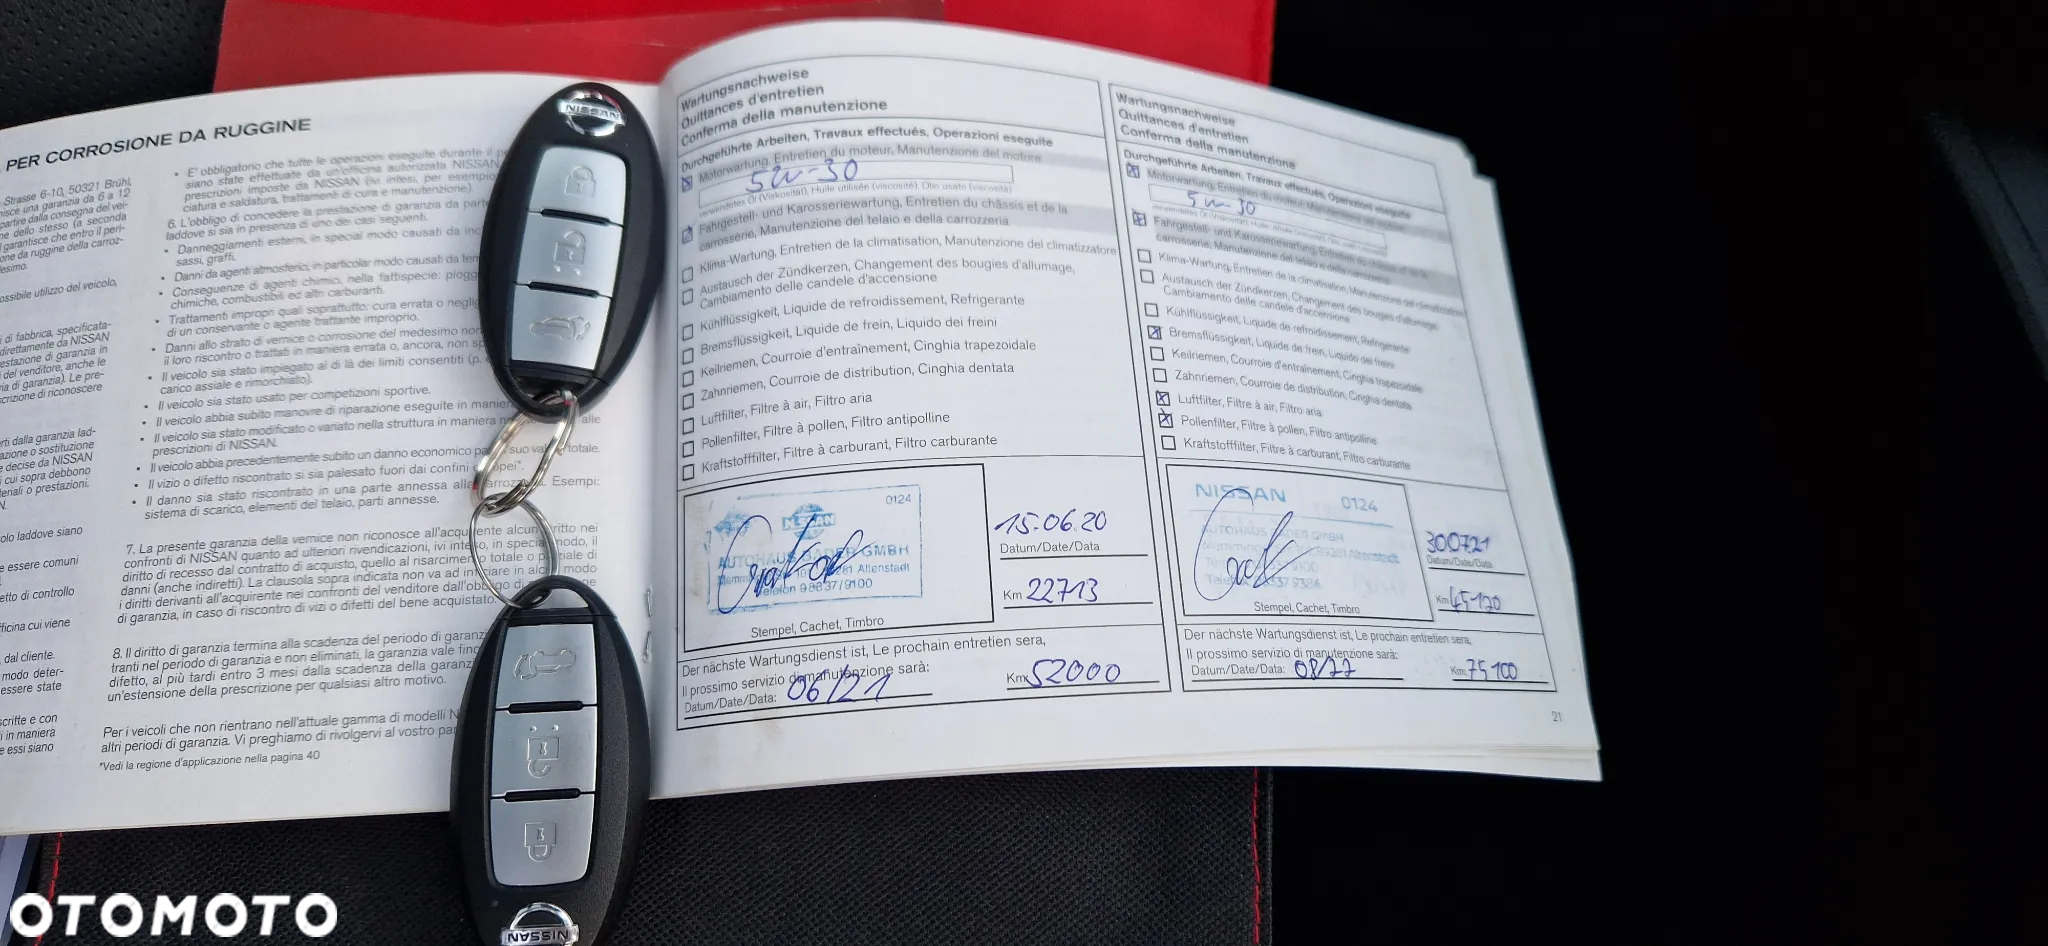 PER CORROSIONE DA RUGGINE
Strasse 6-10, 50321 Brühl,
nisce una garanzia da 6 a 12
partire dalla consegna del vei-
ne dello stesso (a seconda
garantisce che entro il peri-
one da ruggine della carroz-
esimo.
ossibile utilizzo del veicolo,
di fabbrica, specificata-
direttamente da NISSAN
estazione di garanzia in
del venditore, anche le
ia di garanzia). Le pre-
scrizione di riconoscere
rti dalla garanzia lad-
azione o sostituzione
e decise da NISSAN
cui sopra debbono
teriali o prestazioni.
N.
olo laddove siano
e essere comuni
etto di controllo
fficina cui viene
dal cliente.
modo deter-
essere state
scritte e con
i in maniera
e essi siano
• E' obbligatorio che tutte le operazioni eseguite durante il p
siano state effettuate da un'officina autorizzata NISSAN
prescrizioni imposte da NISSAN (ivi intesi, per esempio
ciatura e saldatura, trattamenti di cura e manutenzione).
6. L'obbligo di concedere la prestazione di garanzia da parte
laddove si sia in presenza di uno dei casi seguenti.
• Danneggiamenti esterni, in special modo causati da inc
sassi, graffi.
• Danni da agenti atmosferici, in particolar modo causati da tem
• Conseguenze di agenti chimici, nella fattispecie: piogg
chimiche, combustibili ed altri carburanti.
• Trattamenti impropri quali soprattutto: cura errata o neglig
di un conservante o agente trattante improprio.
• Danni allo strato di vernice o corrosione del medesimo non
il loro riscontro o trattati in maniera errata o, ancora, non sp
• Il veicolo sia stato impiegato al di là dei limiti consentiti (p. e
carico assiale e rimorchiato).
• Il veicolo sia stato usato per competizioni sportive.
• Il veicolo abbia subito manovre di riparazione eseguite in manier
• Il veicolo sia stato modificato o variato nella struttura in maniera n alle
prescrizioni di NISSAN.
• Il veicolo abbia precedentemente subito un danno economico pa suo valore totale.
• Il vizio o difetto riscontrato si sia palesato fuori dai confini europei*.
• Il danno sia stato riscontrato in una parte annessa alla carrozzeria. Esempi:
sistema di scarico, elementi del telaio, parti annesse.
7. La presente garanzia della vernice non riconosce all'acquirente alcun diritto nei
confronti di NISSAN quanto ad ulteriori rivendicazioni, ivi inteso, in special modo, il
diritto di recesso dal contratto di acquisto, quello al risarcimento totale o parziale di
danni (anche indiretti). La clausola sopra indicata non va ad inficiare in alcun modo
i diritti derivanti all'acquirente nei confronti del venditore dall'obbligo di
di garanzia, in caso di riscontro di vizi o difetti del bene acquistato.
8. Il diritto di garanzia termina alla scadenza del periodo di garanz
tranti nel periodo di garanzia e non eliminati, la garanzia vale fino
difetto, al più tardi entro 3 mesi dalla scadenza della garanz
un'estensione della prescrizione per qualsiasi altro motivo.
Per i veicoli che non rientrano nell'attuale gamma di modelli N
altri periodi di garanzia. Vi preghiamo di rivolgervi al vostro par
*Vedi la regione d'applicazione nella pagina 40
NISSAN
NISSAN
Wartungsnachweise
Quittances d'entretien
Conferma della manutenzione
Durchgeführte Arbeiten, Travaux effectués, Operazioni eseguite
Motorwartung, Entretien du moteur, Manutenzione del motore
5w-30
verwendetes Öl (Viskosität), Huile utilisée (viscosité), Olio usato (viscosità)
Fahrgestell- und Karosseriewartung, Entretien du châssis et de la
carrosserie, Manutenzione del telaio e della carrozzeria
Klima-Wartung, Entretien de la climatisation, Manutenzione del climatizzatore
Austausch der Zündkerzen, Changement des bougies d'allumage,
Cambiamento delle candele d'accensione
Kühlflüssigkeit, Liquide de refroidissement, Refrigerante
Bremsflüssigkeit, Liquide de frein, Liquido dei freini
Keilriemen, Courroie d'entraînement, Cinghia trapezoidale
Zahnriemen, Courroie de distribution, Cinghia dentata
Luftfilter, Filtre à air, Filtro aria
Pollenfilter, Filtre à pollen, Filtro antipolline
Kraftstofffilter, Filtre à carburant, Filtro carburante
0124
NISSAN
AUTOHAUS BADER GMBH
Altenstadt
Telefon 08337/9100
Stempel, Cachet, Timbro
15.06.20
Datum/Date/Data
Km 22713
Der nächste Wartungsdienst ist, Le prochain entretien sera,
Il prossimo servizio di manutenzione sarà:
Datum/Date/Data: 06/21
Km 52000
Wartungsnachweise
Quittances d'entretien
Conferma della manutenzione
Durchgeführte Arbeiten, Travaux effectués, Operazioni eseguite
Motorwartung, Entretien du moteur, Manutenzione del motore
5w-30
verwendetes Öl (Viskosität), Huile utilisée (viscosité), Olio usato (viscosità)
Fahrgestell- und Karosseriewartung, Entretien du châssis et de la
carrosserie, Manutenzione del telaio e della carrozzeria
Klima-Wartung, Entretien de la climatisation, Manutenzione del climatizzatore
Austausch der Zündkerzen, Changement des bougies d'allumage,
Cambiamento delle candele d'accensione
Kühlflüssigkeit, Liquide de refroidissement, Refrigerante
Bremsflüssigkeit, Liquide de frein, Liquido dei freini
Keilriemen, Courroie d'entraînement, Cinghia trapezoidale
Zahnriemen, Courroie de distribution, Cinghia dentata
Luftfilter, Filtre à air, Filtro aria
Pollenfilter, Filtre à pollen, Filtro antipolline
Kraftstofffilter, Filtre à carburant, Filtro carburante
NISSAN 0124
AUTOHAUS BADER GMBH
Altenstadt
Stempel, Cachet, Timbro
300721
Datum/Date/Data
Km 45120
Der nächste Wartungsdienst ist, Le prochain entretien sera,
Il prossimo servizio di manutenzione sarà:
Datum/Date/Data: 08/22
Km 75100
21
OTOMOTO